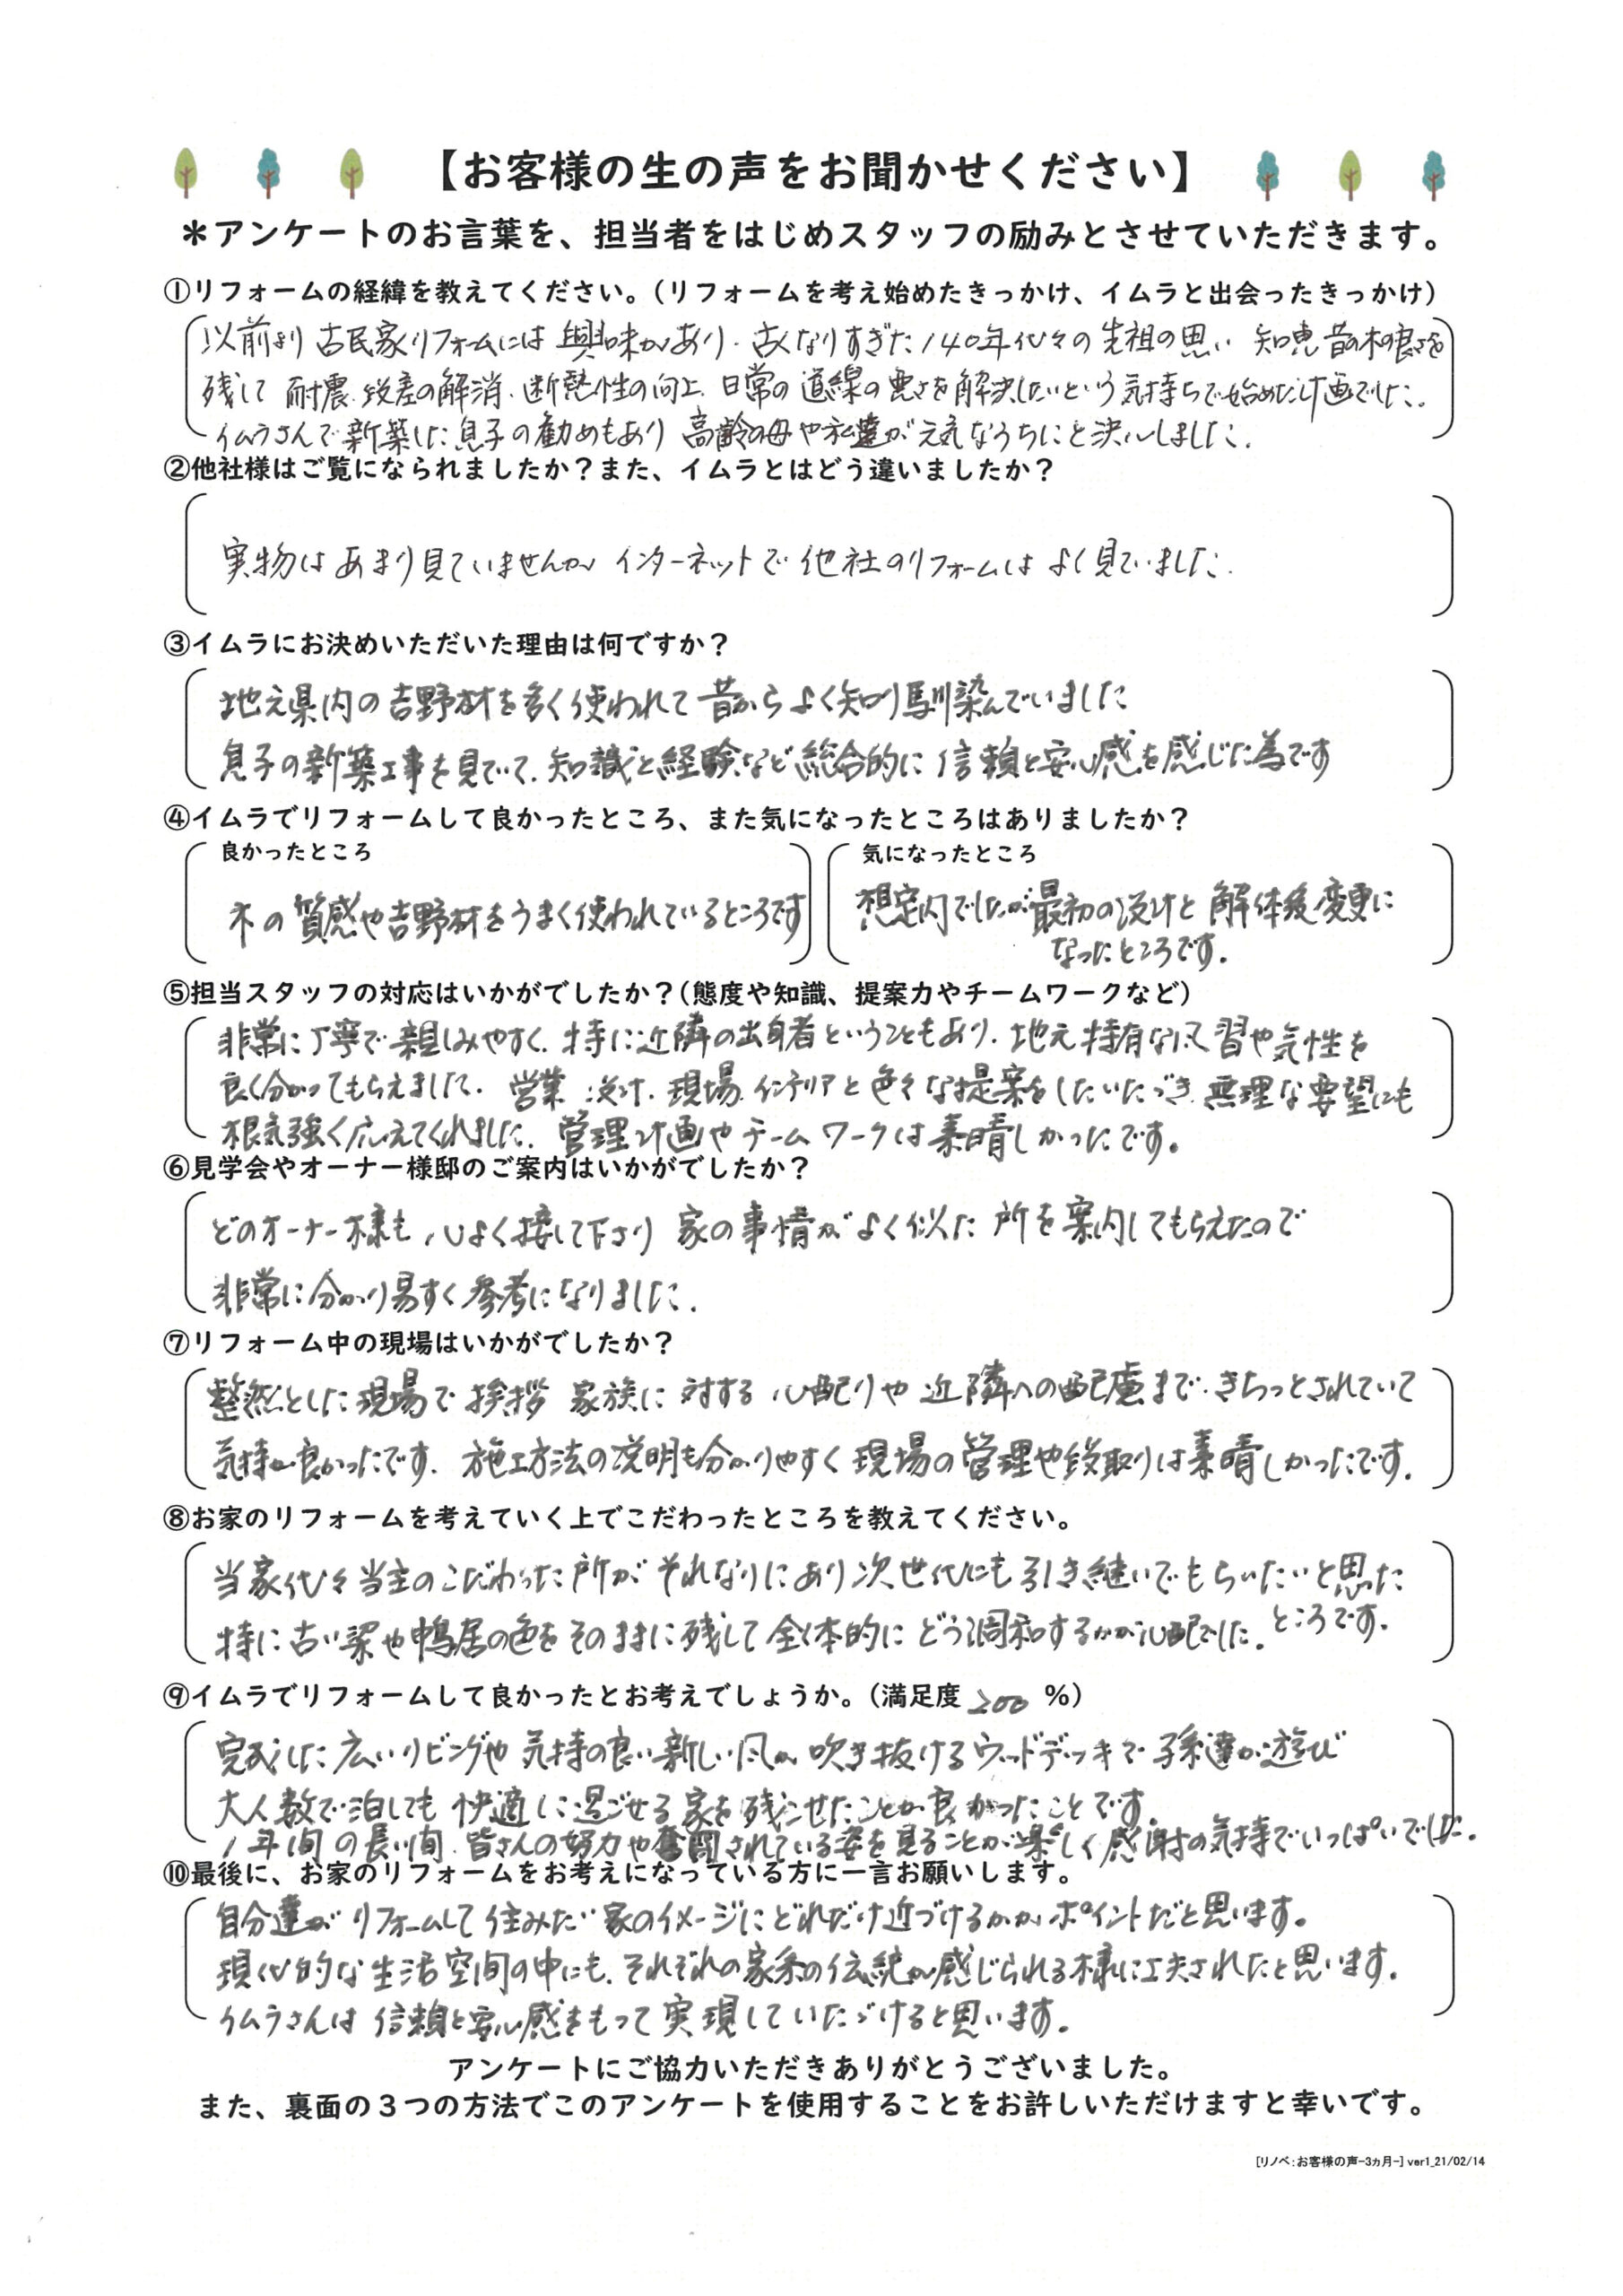 【お客様の生の声をお聞かせください】
＊アンケートのお言葉を、担当者をはじめスタッフの励みとさせていただきます。
①リフォームの経緯を教えてください。（リフォームを考え始めたきっかけ、イムラと出会ったきっかけ）
以前より古民家リフォームには興味があり、古くなりすぎた140年代々の先祖の思い 知恵 昔の木の良さを
残して 耐震、段差の解消、断熱性の向上、日常の道線の悪さを解決したいという気持ちで始めた計画でした。
イムラさんで新築した息子の勧めもあり 高齢の母や私達が元気なうちにと決心しました。
②他社様はご覧になられましたか？また、イムラとはどう違いましたか？
実物はあまり見ていませんが インターネットで他社のリフォームはよく見ていました。
③イムラにお決めいただいた理由は何ですか？
地元県内の吉野材を多く使われて昔からよく知り馴染んでいました
息子の新築工事を見ていて、知識と経験など総合的に信頼と安心感を感じた為です
④イムラでリフォームして良かったところ、また気になったところはありましたか？
良かったところ
木の質感や吉野材をうまく使われているところです
気になったところ
想定内でしたが最初の設計と解体後変更に
なったところです。
⑤担当スタッフの対応はいかがでしたか？（態度や知識、提案力やチームワークなど）
非常に丁寧で親しみやすく、特に近隣の出身者ということもあり、地元特有な風習や気性を
良く分かってもらえました。営業、設計、現場、インテリアと色々な提案をしたいただき、無理な要望にも
根気強く応えてくれました。管理計画やチームワークは素晴しかったです。
⑥見学会やオーナー様邸のご案内はいかがでしたか？
どのオーナー様も心よく接して下さり 家の事情がよく似た所を案内してもらえたので
非常に分かり易すく参考になりました。
⑦リフォーム中の現場はいかがでしたか？
整然とした現場で挨拶 家族に対する心配りや近隣への配慮まで、きちっとされていて
気持が良かったです。施工方法の説明も分かりやすく現場の管理や段取りは素晴しかったです。
⑧お家のリフォームを考えていく上でこだわったところを教えてください。
当家代々当主のこだわった所がそれなりにあり次世代にも引き継いでもらいたいと思った
ところです。
特に古い梁や鴨居の色をそのままに残して全体的にどう調和するかが心配でした。
⑨イムラでリフォームして良かったとお考えでしょうか。（満足度 200 %）
完成した広いリビングや気持の良い新しい風が吹き抜けるウッドデッキで孫達が遊び
大人数で泊しても快適に過ごせる家を残せたことが良かったことです。
1年間の長い間、皆さんの努力や奮闘されている姿を見ることが楽しく感謝の気持でいっぱいでした。
⑩最後に、お家のリフォームをお考えになっている方に一言お願いします。
自分達がリフォームして住みたい家のイメージにどれだけ近づけるかがポイントだと思います。
現代的な生活空間の中にも、それぞれの家系の伝統が感じられる様に工夫されたと思います。
イムラさんは信頼と安心感をもって実現していただけると思います。
アンケートにご協力いただきありがとうございました。
また、裏面の３つの方法でこのアンケートを使用することをお許しいただけますと幸いです。
[リノベ：お客様の声-3ヵ月-] ver1_21/02/14